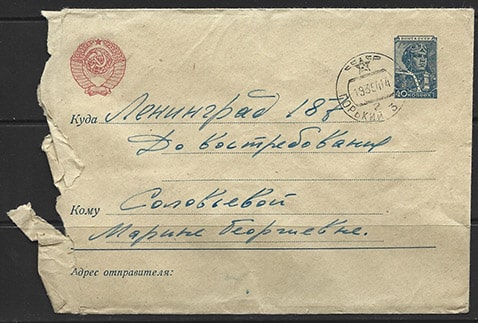 ПОЧТА СССР
40 КОПЕЕК
ГОРЬКИЙ
Куда Ленинград 187
До востребования
Кому Соловьевой
Марине Георгиевне.
Адрес отправителя: